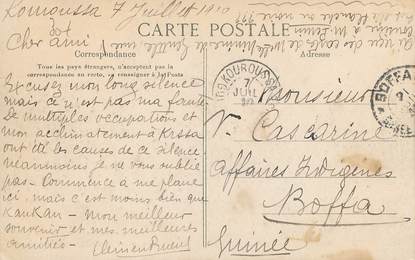 Kouroussa 7 Juillet 1910
Cher ami
CARTE POSTALE
Correspondance
Tous les pays étrangers, n'acceptent pas la
correspondance au recto, se renseigner à la Poste
Adresse
Excusez mon long silence
mais ce n'est pas ma faute
De multiples occupations et
mon acclimatement à Krssa
ont été les causes de ce silence
néanmoins je ne vous oublie
pas - Commence à me plaire
ici, mais c'est moins bien que
Kankan - Mon meilleur
souvenir et mes meilleures
amitiés -
KOUROUSSA
7
JUIL
10
BOFFA
Monsieur
V. Cascarino
Affaires Indigènes
Boffa
Guinée